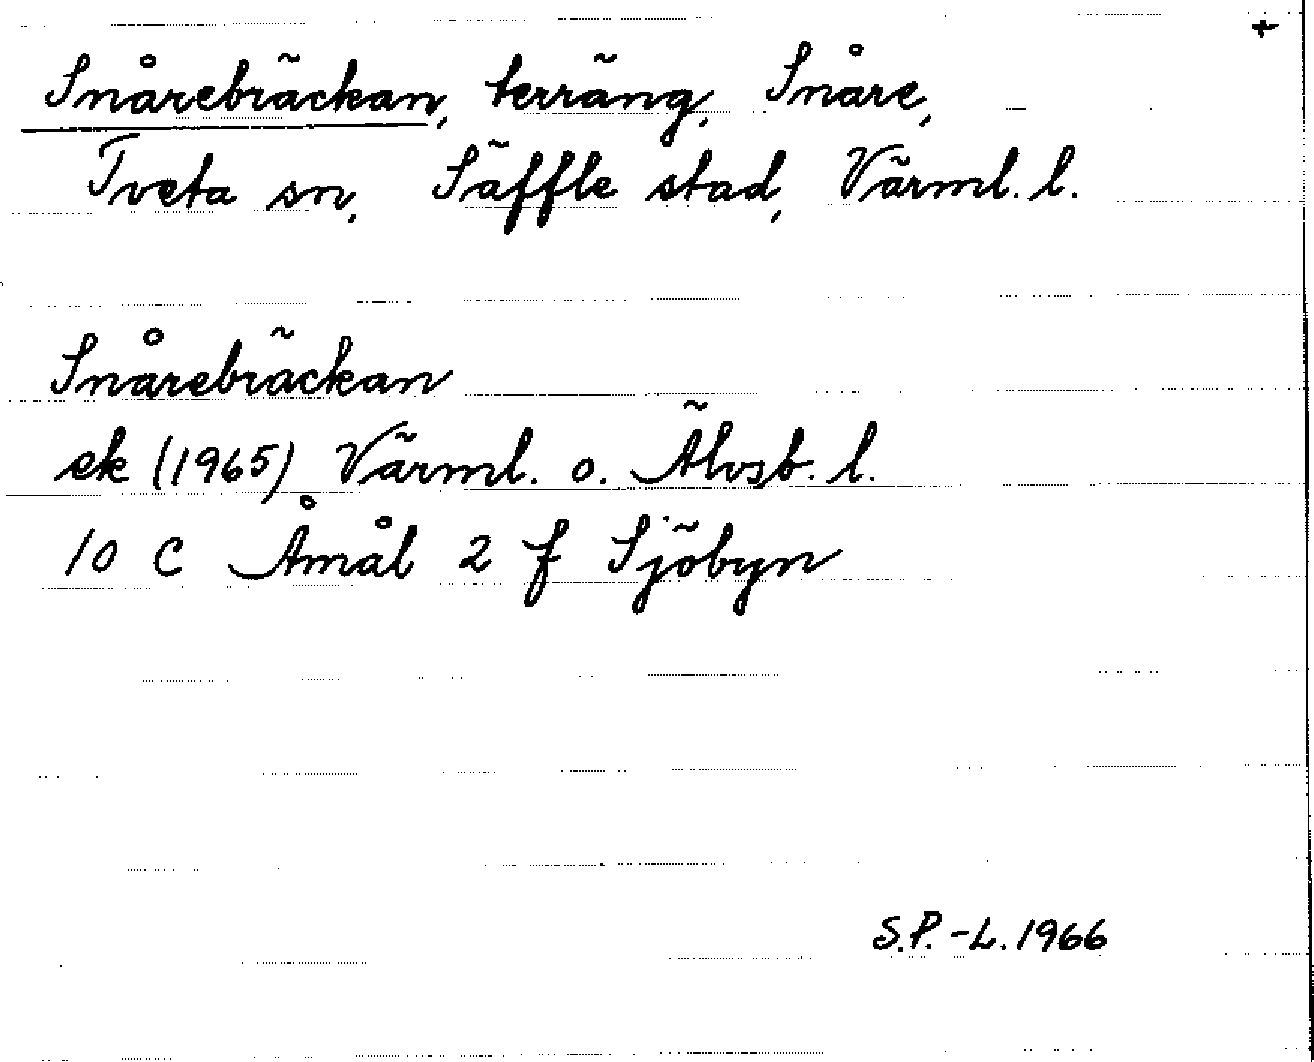 +
Snårebräckan, terräng, Snåre,
Tveta sn, Säffle stad, Värml. l.
Snårebräckan
ek (1965) Värml. o. Älvsb. l.
10 C Åmål 2 f Sjöbyn
S.P.-L. 1966